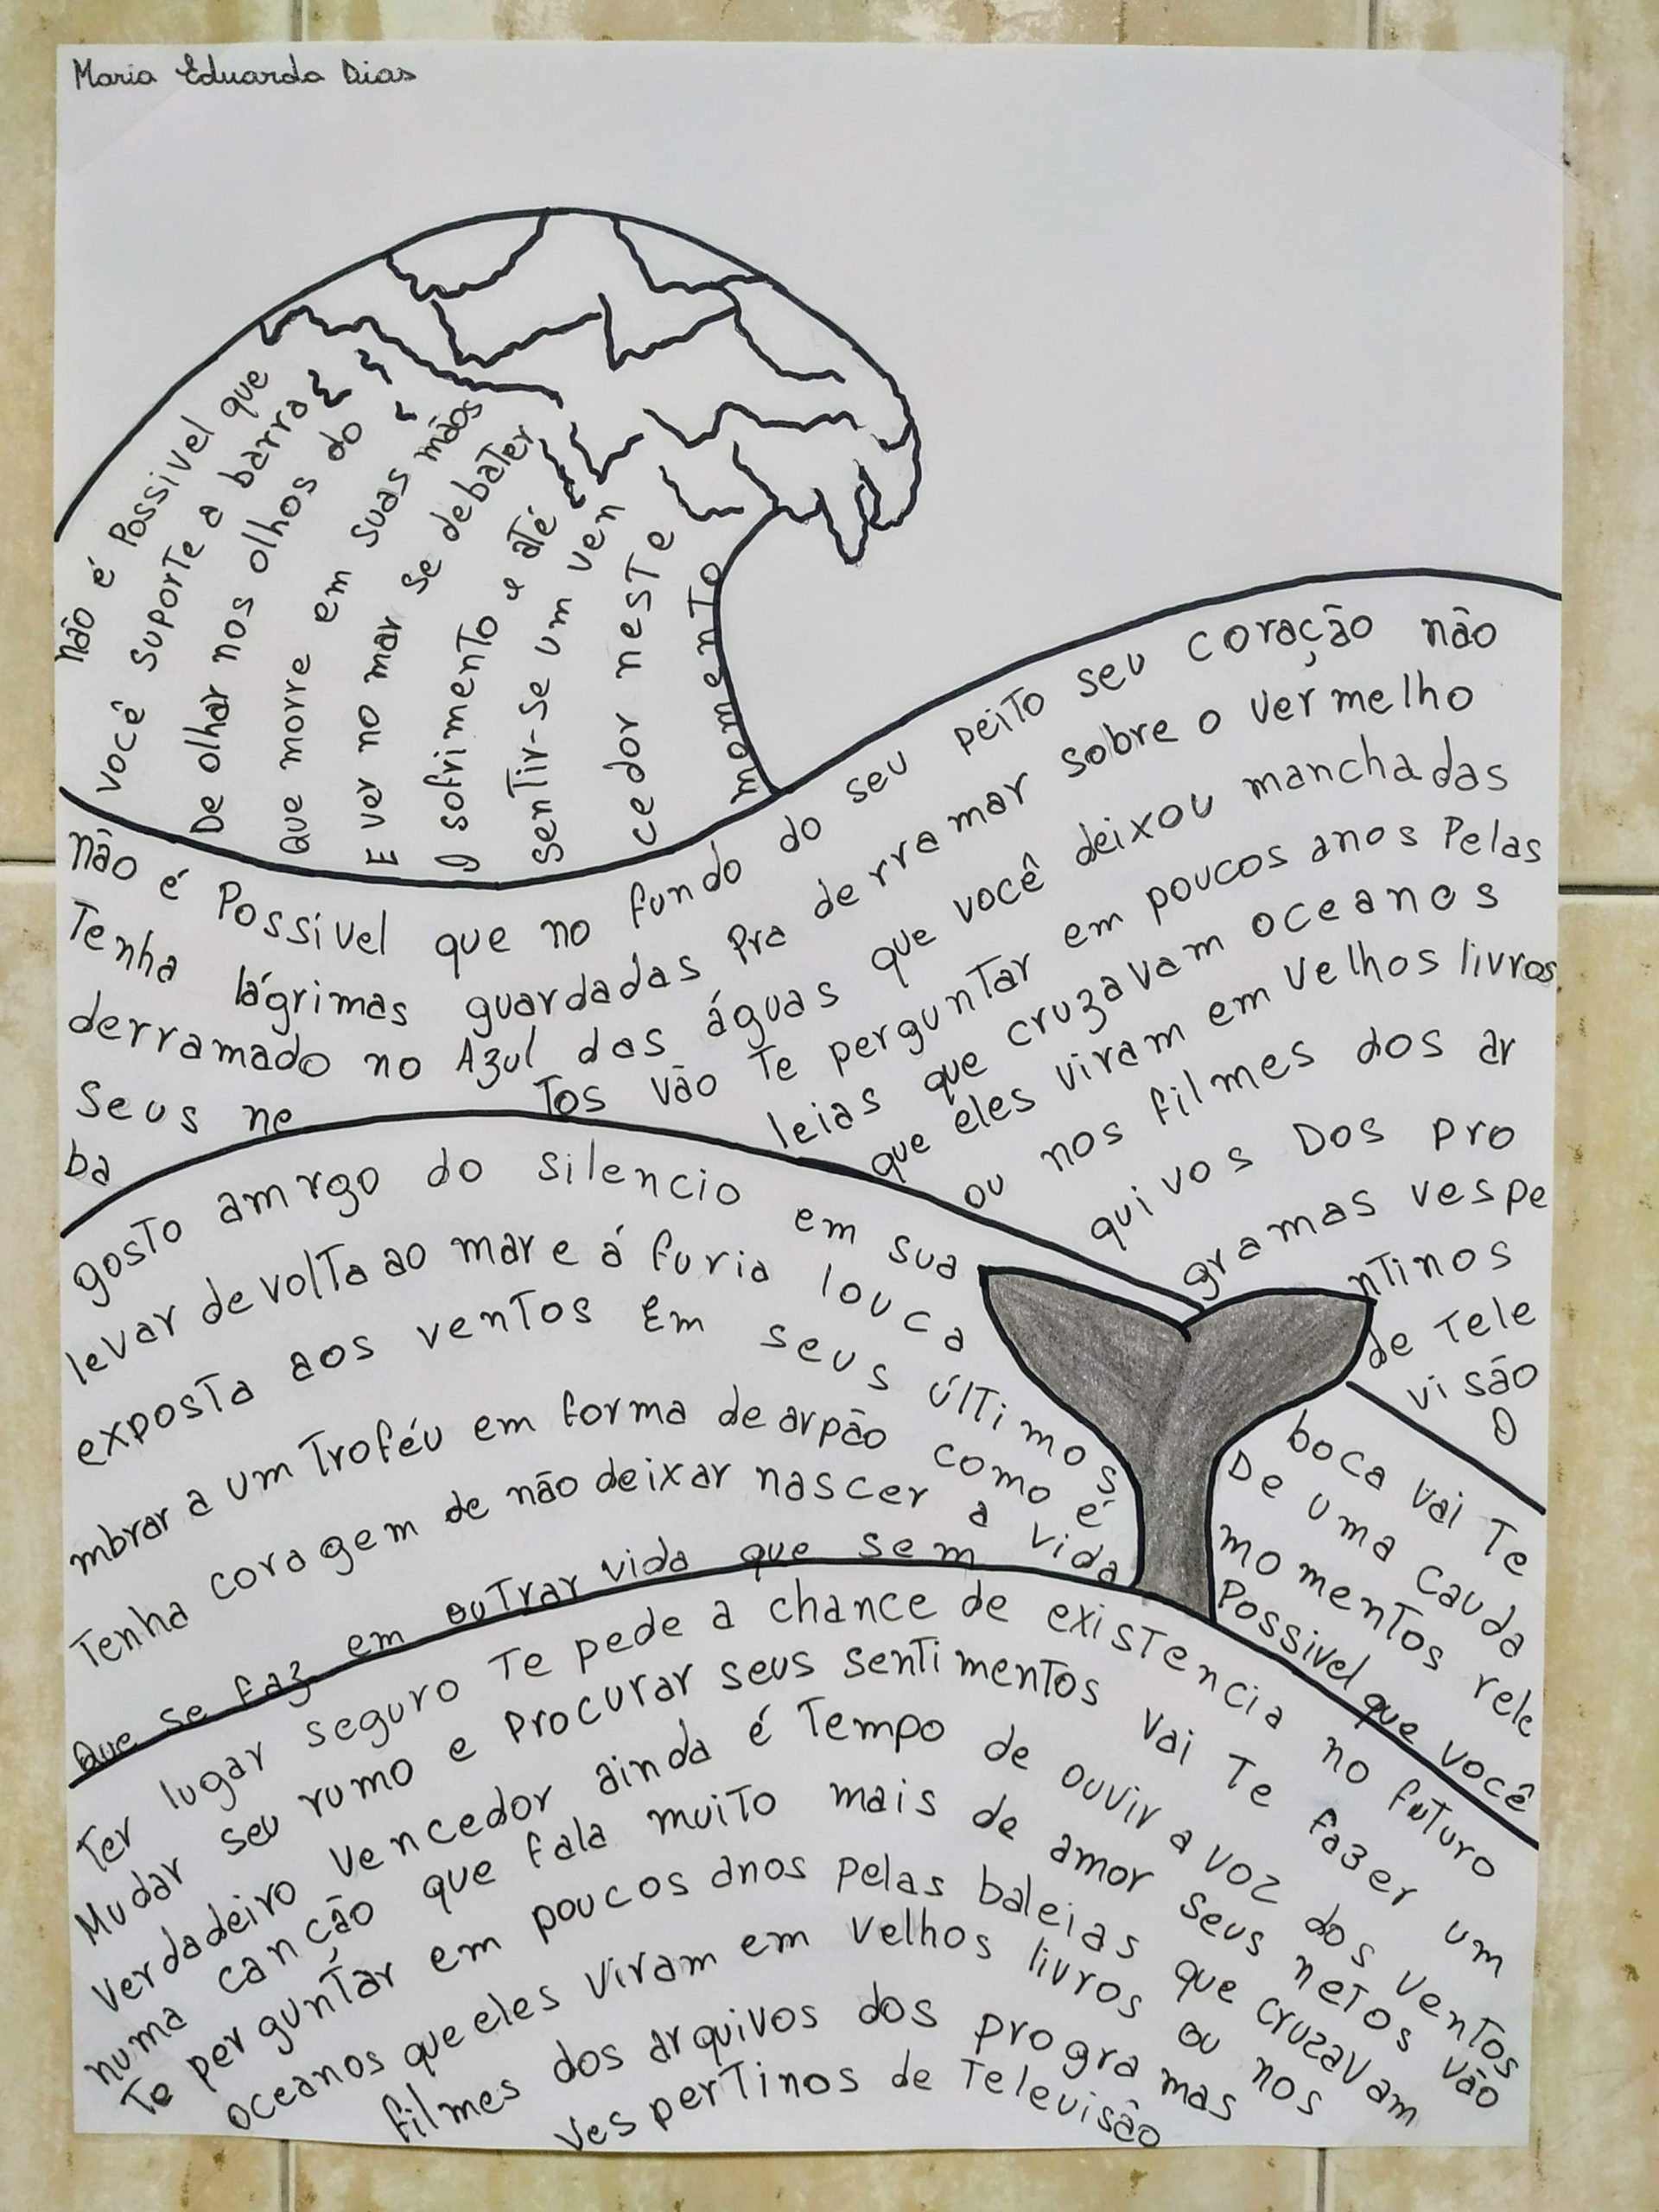 Maria Eduarda Dias
Não é Possivel que
você suporte a barra
De olhar nos olhos do
Que morre em suas mãos
E ver no mar se debater
O sofrimento e até
sentir-se um ven
cedor neste
momento
Não é Possivel que no fundo do seu peito seu coração não
Tenha lágrimas guardadas pra derramar sobre o vermelho
derramado no Azul das águas que você deixou manchadas
Seus ne tos vão te perguntar em poucos anos Pelas
ba leias que cruzavam oceanos
que eles viram em velhos livros
ou nos filmes dos ar
quivos Dos pro
gramas vespe
ntinos
de Tele
visão
O
gosto amrgo do silencio em sua boca vai Te
levar de volta ao mar e á furia louca De uma cauda
exposta aos ventos Em seus últimos momentos rele
mbrar a um Troféu em forma de arpão como é Possivel que você
Tenha coragem de não deixar nascer a vida
Que se faz em outrar vida que sem
Ter lugar seguro Te pede a chance de existencia no futuro
Mudar seu rumo e Procurar seus sentimentos vai Te fazer um
verdadeiro vencedor ainda é Tempo de ouvir a voz dos ventos
numa canção que fala muito mais de amor seus netos vão
Te perguntar em poucos anos pelas baleias que cruzavam
oceanos que eles viram em velhos livros ou nos
filmes dos arquivos dos programas
vespertinos de Televisão